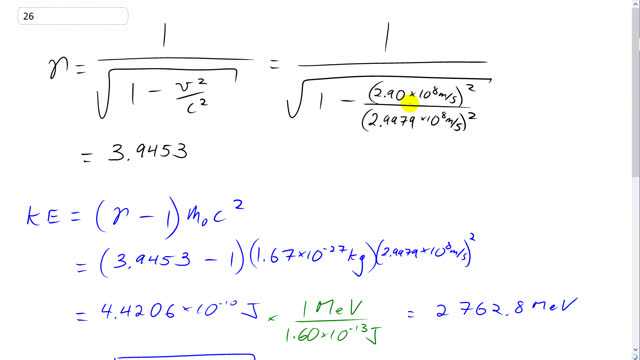 26
γ = 1 / √(1 − v²/c²) = 1 / √(1 − (2.90×10⁸m/s)²/(2.9979×10⁸m/s)²)
= 3.9453
KE = (γ − 1) m₀c²
= (3.9453 − 1)(1.67×10⁻²⁷kg)(2.9979×10⁸m/s)²
= 4.4206×10⁻¹⁰ J × 1 MeV / 1.60×10⁻¹³J = 2762.8 MeV